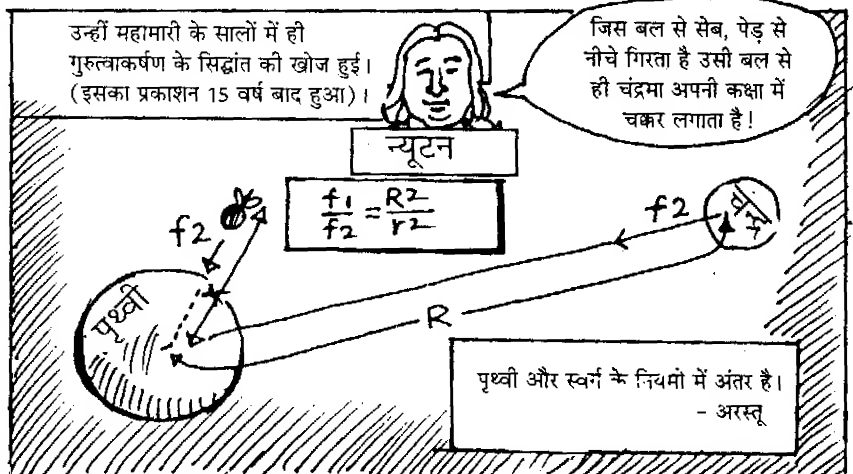 उन्हीं महामारी के सालों में ही
गुरुत्वाकर्षण के सिद्धांत की खोज हुई।
(इसका प्रकाशन 15 वर्ष बाद हुआ)।
जिस बल से सेब, पेड़ से
नीचे गिरता है उसी बल से
ही चंद्रमा अपनी कक्षा में
चक्कर लगाता है!
न्यूटन
f1/f2 = R2/r2
f2
f2
चंद्र
पृथ्वी
R
पृथ्वी और स्वर्ग के नियमो में अंतर है।
- अरस्तू